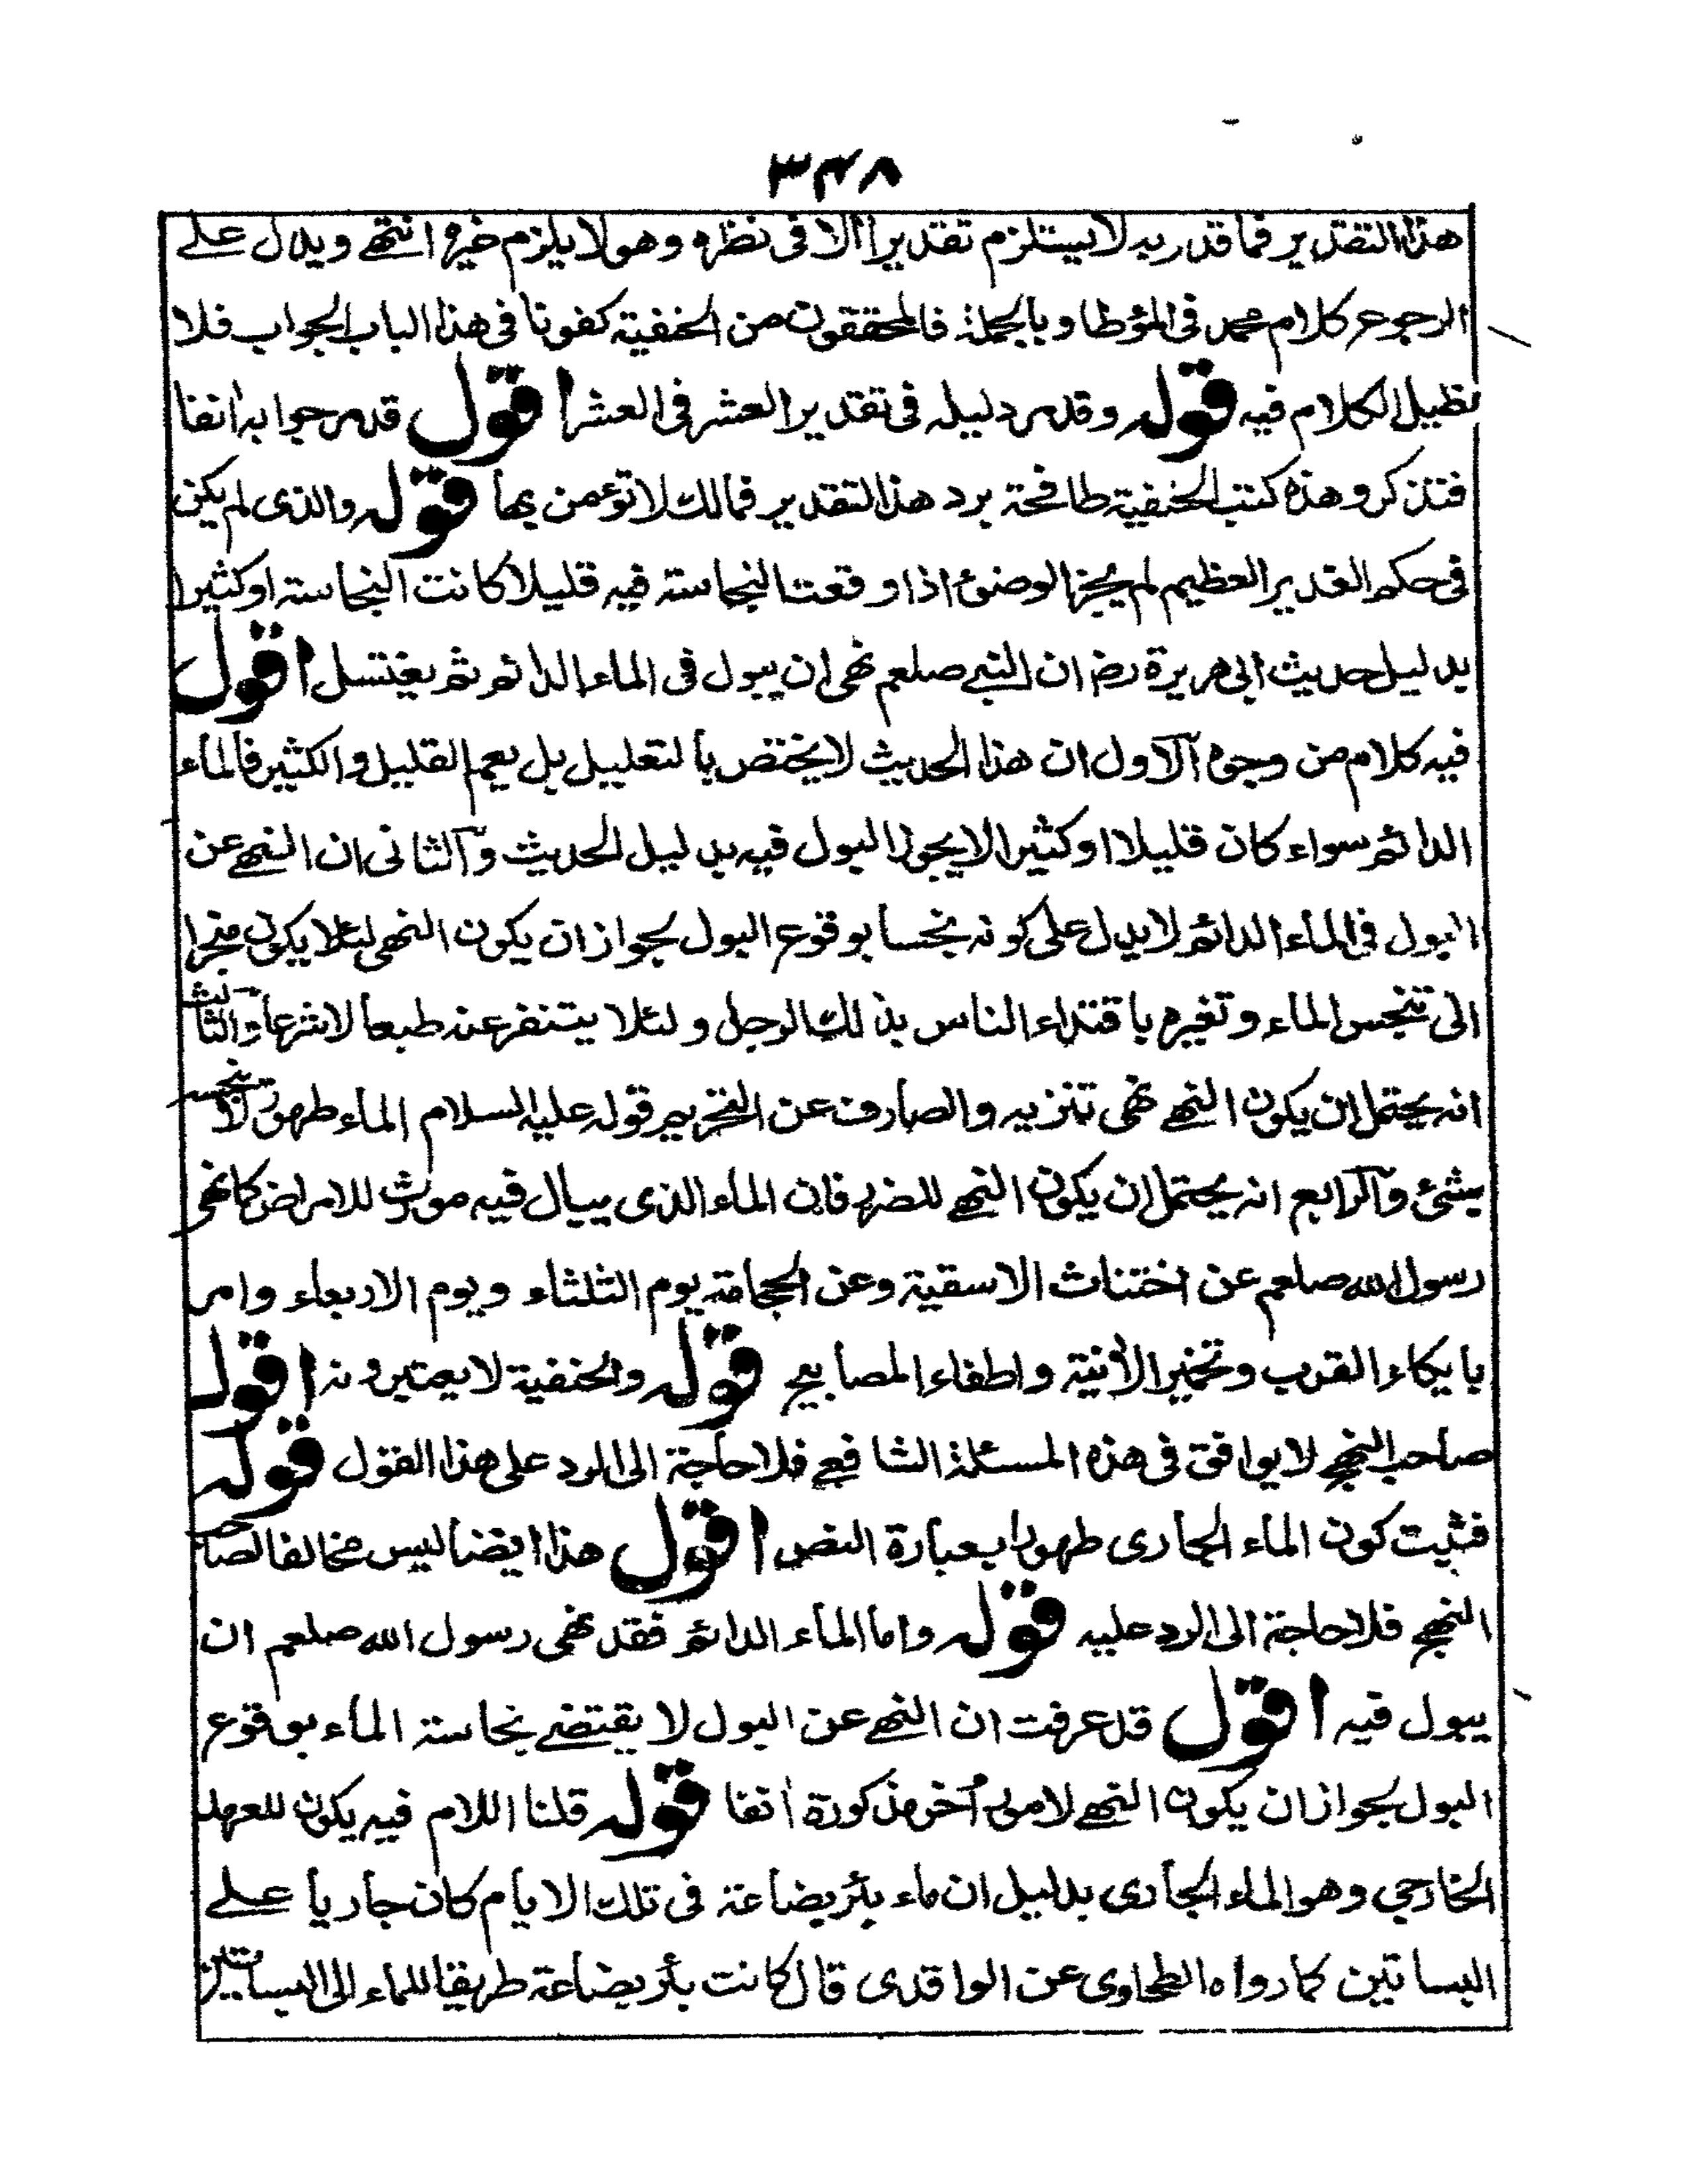 ٣٤٨
هذا التقدير فما قدر به لا يستلزم تقديرا الا في نظره وهو لا يلزم غيره انتهے ويدل علے
الرجوع كلام محمد في المؤطا وبالجملة فالمحققون من الحنفية كفونا في هذا الباب الجواب فلا
نطيل الكلام فيه قوله وقد مر دليله في تقدير العشر في العشر اقول قد مر جوابه انفا
فتذكر وهذه كتب الحنفية طافحة برد هذا التقدير فمالك لا تؤمن بها قوله والذى لم يكن
في حكم الغدير العظيم لم يجز الوضوء اذا وقعت النجاسة فيه قليلا كانت النجاسة او كثيرا
بدليل حديث ابي هريرة رض ان النبے صلعم نهى ان يبول في الماء الدائم ثم يغتسل اقول
فيه كلام من وجوه آلاول ان هذا الحديث لا يختص بالتعليل بل يعم القليل والكثير فالماء
الدائم سواء كان قليلا او كثيرا لا يجوز البول فيه بدليل الحديث وآلثانى ان النهے عن
البول في الماء الدائم لا يدل على كونه نجسا بوقوع البول لجواز ان يكون النهى لئلا يكون منجرا
الى تنجس الماء وتغيره باقتداء الناس بذلك الرجل ولئلا يتنفر عنه طبعا لا شرعا والثالث
انه يحتمل ان يكون النهے نهى تنزيه والصارف عن التحريم قوله عليه السلام الماء طهور لا ينجسه
شئ وآلرابع انه يحتمل ان يكون النهے للضرر فان الماء الذى يبال فيه مورث للامراض كما نهى
رسول الله صلعم عن اختناث الاسقية وعن الحجامة يوم الثلثاء ويوم الاربعاء وامر
بايكاء القرب وتخمير الأنية واطفاء المصابيح قوله والحنفية لا يعتبرونه اقول
صاحب النهج لا يوافق في هذه المسئلة الشافعے فلا حاجة الى الرد على هذا القول قوله
فثبت كون الماء الجارى طهورا بعبارة النص اقول هذا ايضا ليس مخالفا لصاحب
النهج فلا حاجة الى الرد عليه قوله واما الماء الدائم فقد نهى رسول الله صلعم ان
يبول فيه اقول قد عرفت ان النهے عن البول لا يقتضے نجاسة الماء بوقوع
البول لجواز ان يكون النهے لامور أخر مذكورة انفا قوله قلنا اللام فيه يكون للعهد
الخارجي وهو الماء الجارى بدليل ان ماء بئر بضاعة في تلك الايام كان جاريا علے
البساتين كما رواه الطحاوى عن الواقدى قال كانت بئر بضاعة طريقا للماء الى البساتين